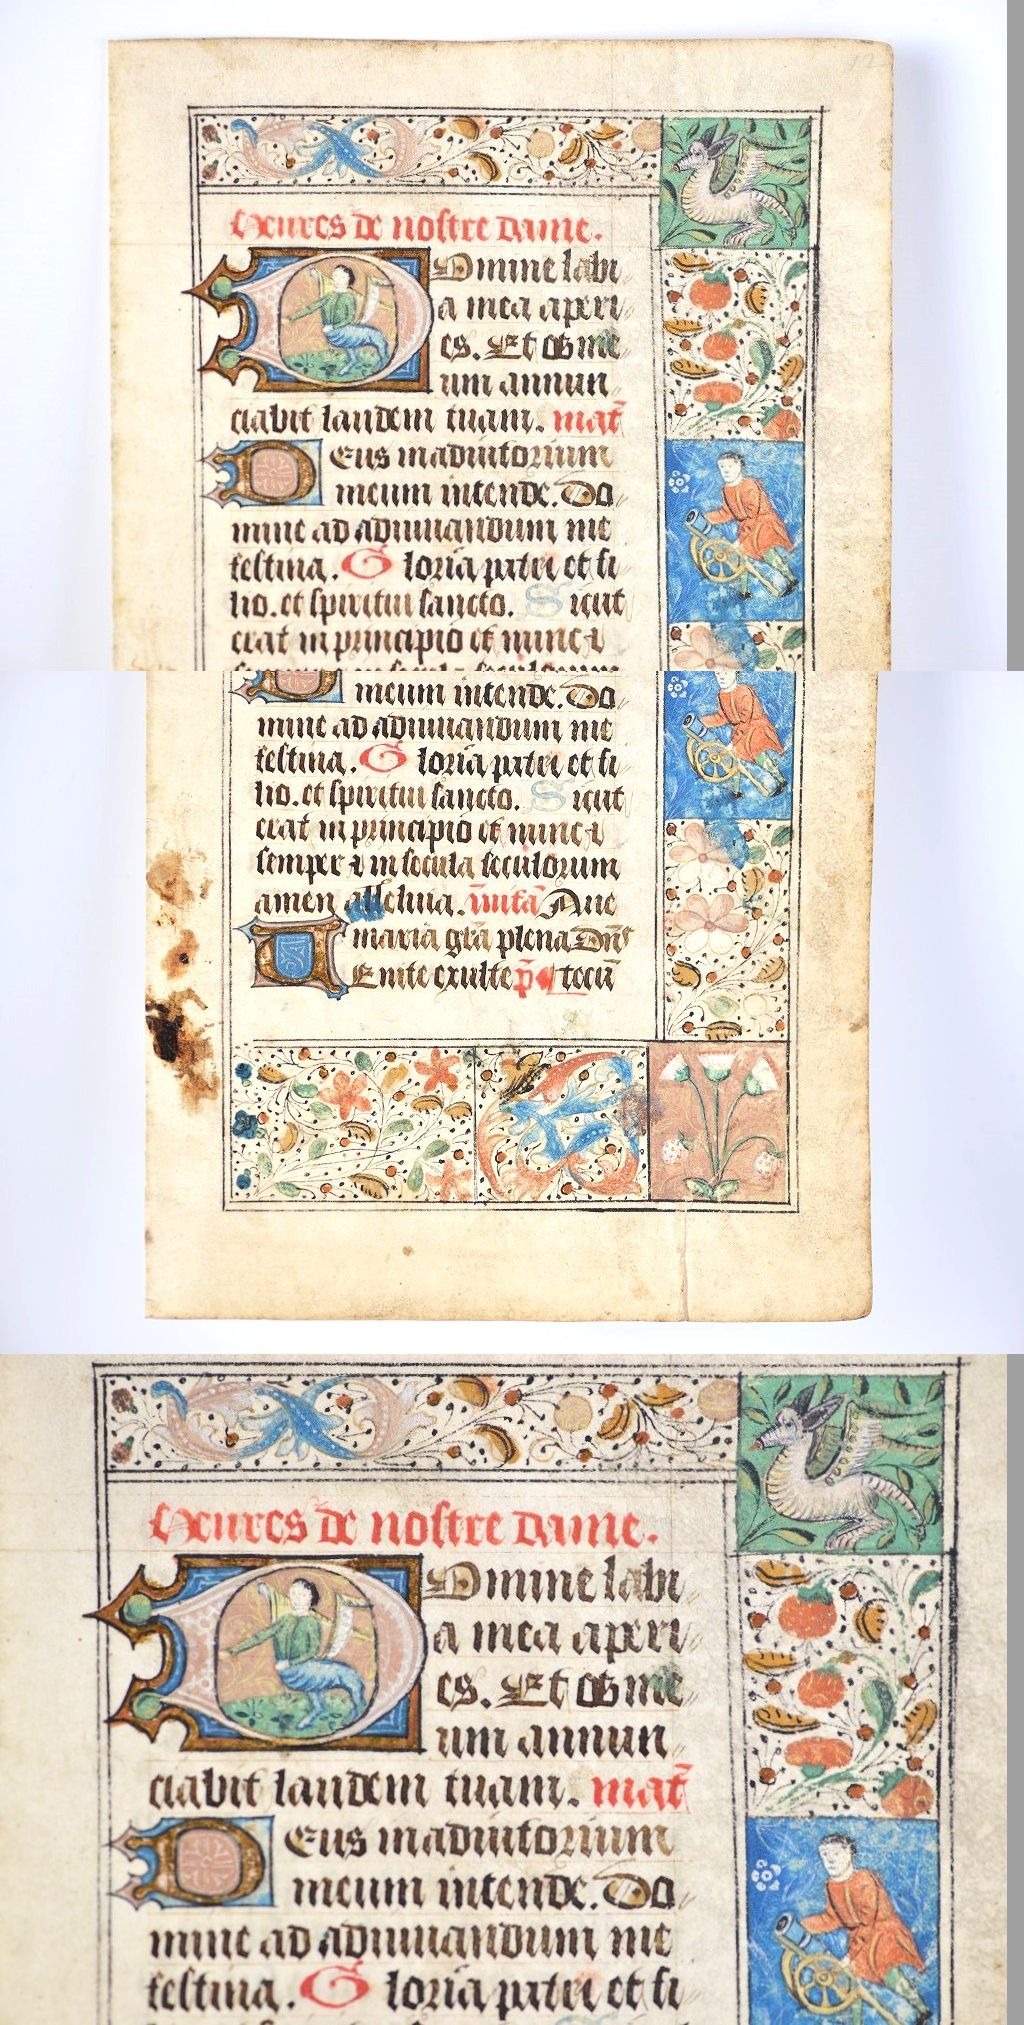 12
Heures de nostre dame.
Domine labi
a mea aperi
es. Et os me
um annun
ciabit laudem tuam. mat̄
Deus in adiutorium
meum intende. Do
mine ad adiuuandum me
festina. Gloria patri et fi
lio. et spiritui sancto. Sicut
erat in principio et nunc ⁊
semper ⁊ in secula seculorum
meum intende. Do
mine ad adiuuandum me
festina. Gloria patri et fi
lio. et spiritui sancto. Sicut
erat in principio et nunc ⁊
semper ⁊ in secula seculorum
amen alleluia. Aue
maria gr̄a plena Dn̄s
Uenite exulte p̄s
Heures de nostre dame.
Domine labi
a mea aperi
es. Et os me
um annun
ciabit laudem tuam. mat̄
Deus in adiutorium
meum intende. Do
mine ad adiuuandum me
festina. Gloria patri et fi